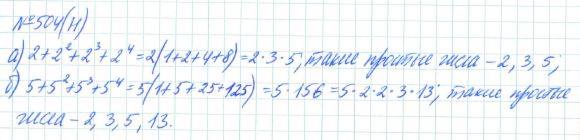 №504(Н)
а) 2+2²+2³+2⁴=2(1+2+4+8)=2·3·5; такие простые числа – 2, 3, 5;
б) 5+5²+5³+5⁴=5(1+5+25+125)=5·156=5·2·2·3·13; такие простые
числа – 2, 3, 5, 13.